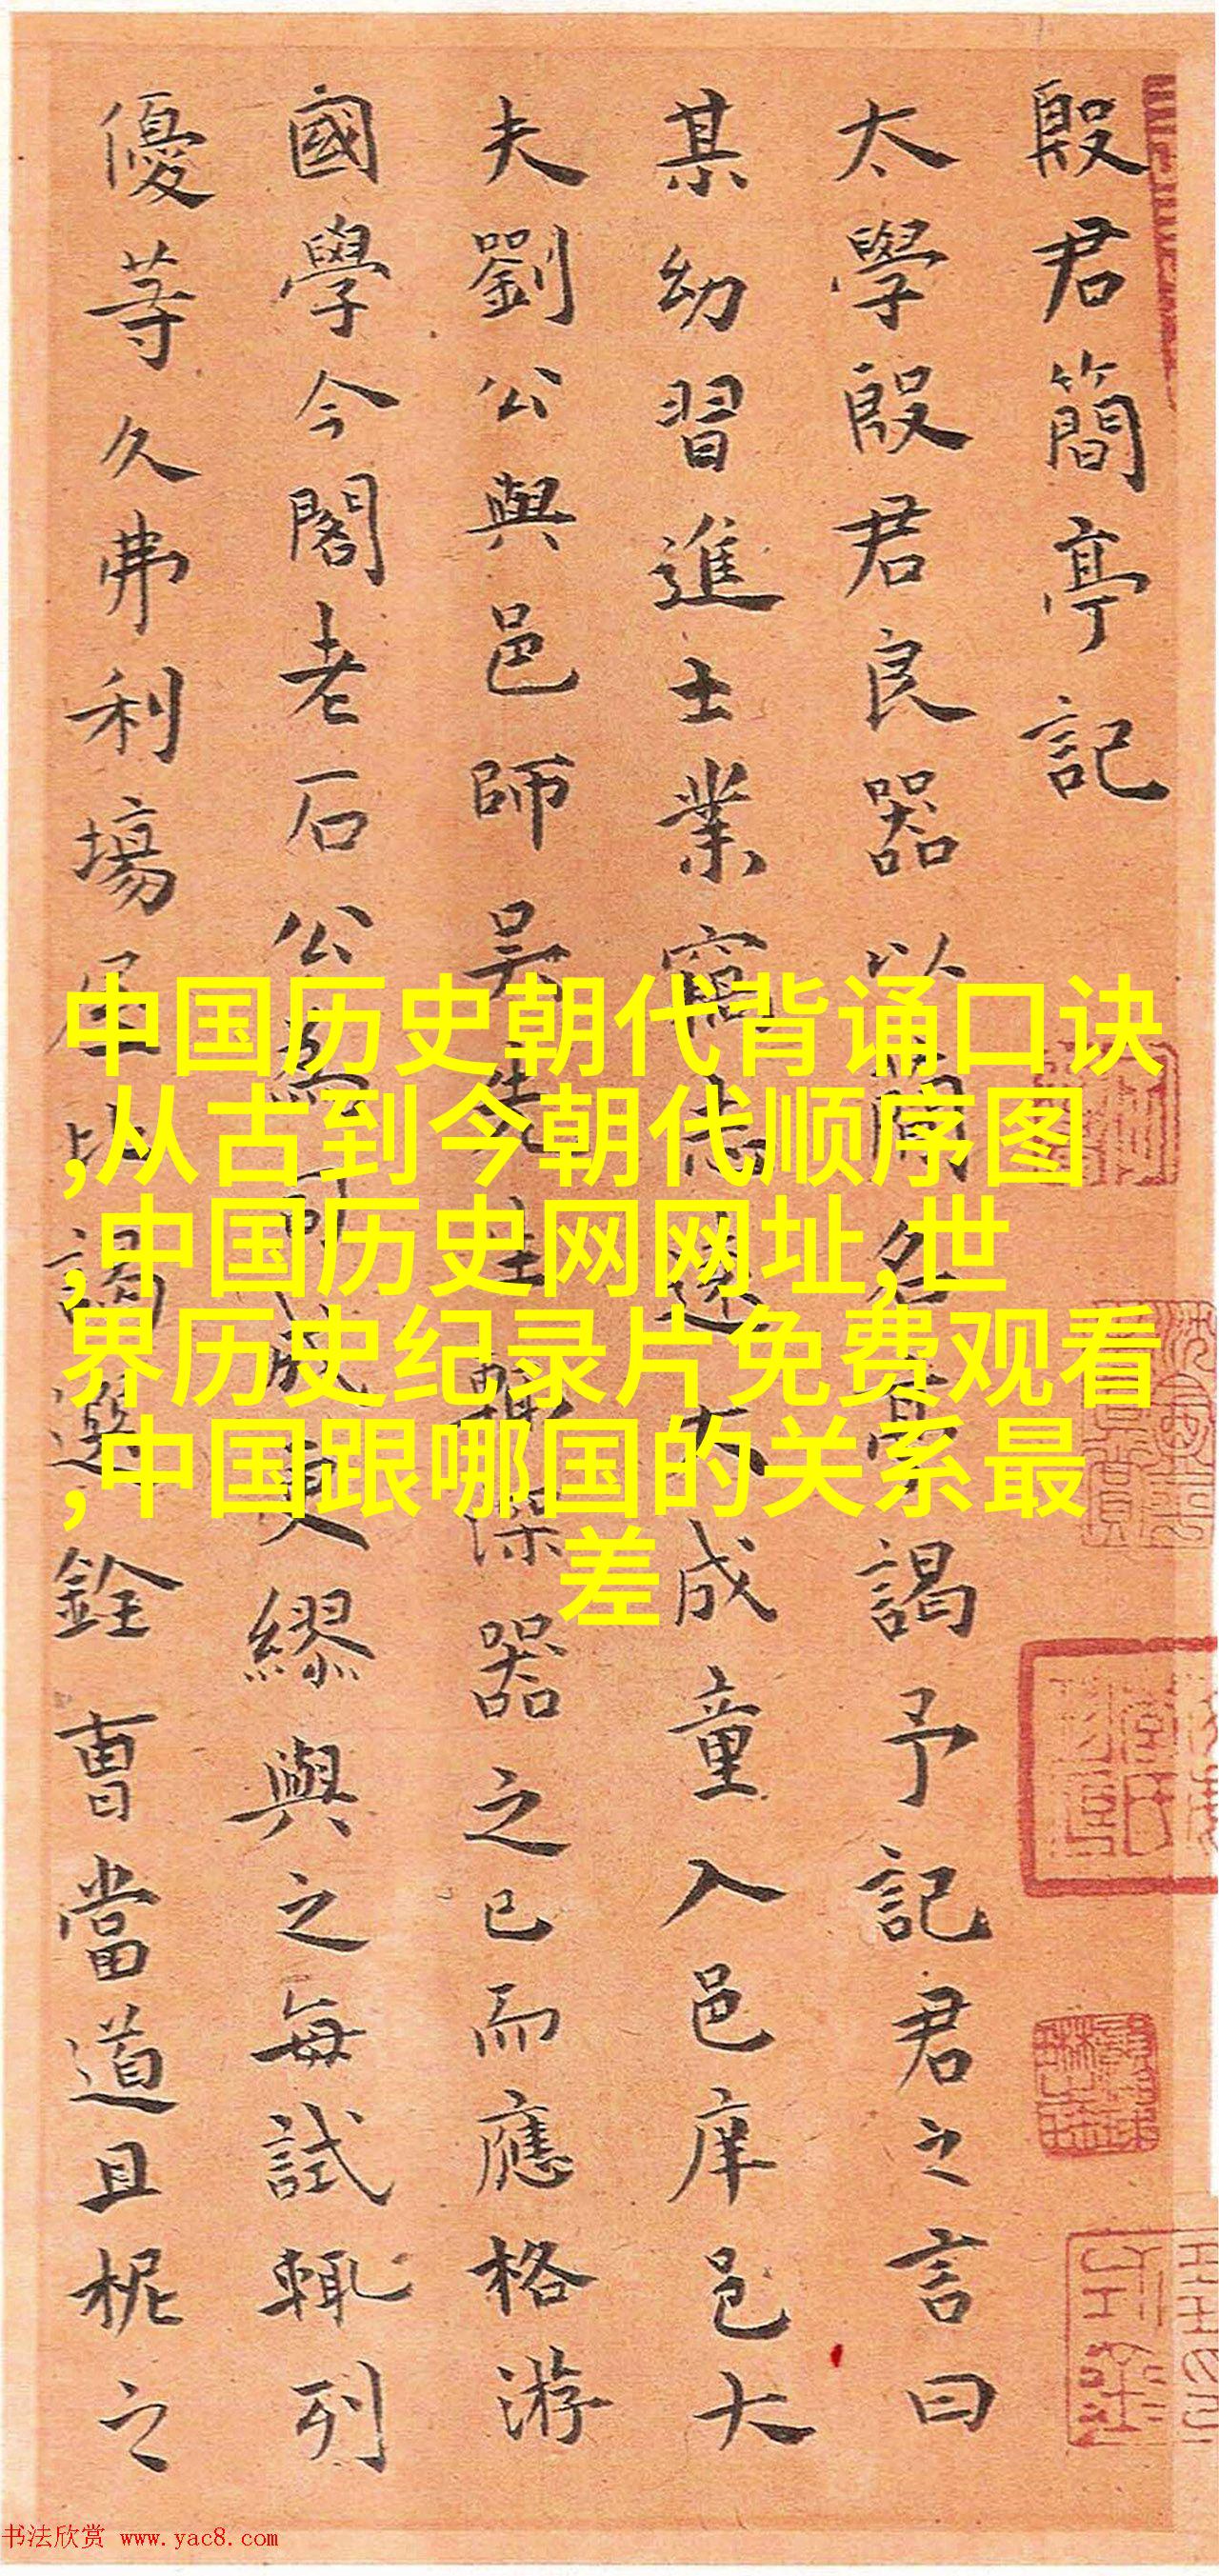 殷君簡亭記
太學殷君良器以簡名亭謁予記君之言曰
某幼習進士業竊志遠大成童入邑庠邑大
夫劉公與邑師吴先生輒深器之已而應格游
國學今閣老石公為司成更繆與之每試輒列
優等久弗利場屋比謁選銓曹當道且柅之
中国历史朝代背诵口诀
,从古到今朝代顺序图
,中国历史网网址,世
界历史纪录片免费观看
,中国跟哪国的关系最
差
书法欣赏 www.yac8.com